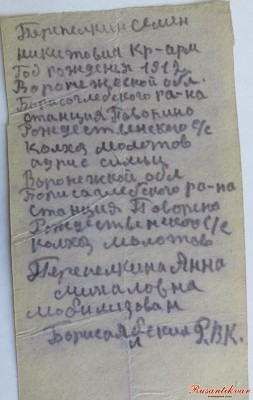 Перепелкин Семен
никитович Кр-арм
Год рождения 1912
Воронежской обл.
Борисоглебского ра-на
станция Поворино
Рождественского с/с
Колхоз молотов
адрис симьи
Воронежкой обл
Борисоглебского ра-на
станция Поворино
Рождественского с/с
колхоз молотов
Перепелкина Анна
михаловна
мобилизован
Борисоглбский Р.В.К.
Rusantikvar